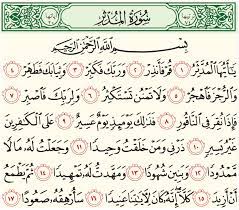 سورة المدثر
بسم الله الرحمن الرحيم
يأيها المدثر ١ قم فأنذر ٢ وربك فكبر ٣ وثيابك فطهر ٤
والرجز فاهجر ٥ ولا تمنن تستكثر ٦ ولربك فاصبر ٧
فإذا نقر في الناقور ٨ فذلك يومئذ يوم عسير ٩ على الكفرين
غير يسير ١٠ ذرني ومن خلقت وحيدا ١١ وجعلت له مالا
ممدودا ١٢ وبنين شهودا ١٣ ومهدت له تمهيدا ١٤ ثم يطمع
أن أزيد ١٥ كلا إنه كان لأيتنا عنيدا ١٦ سأرهقه صعودا ١٧